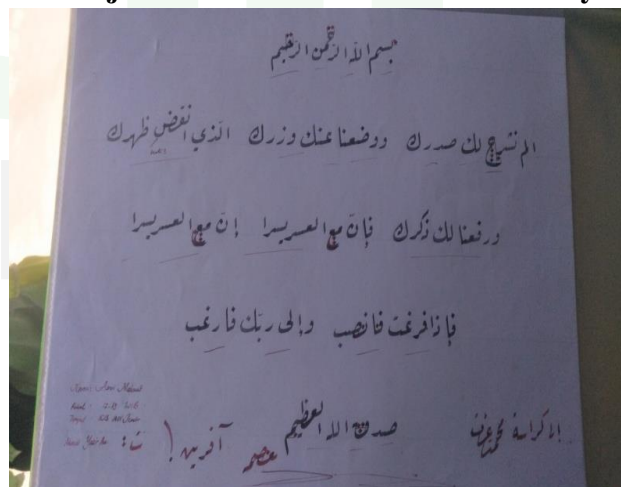 بسم الله الرحمن الرحيم
الم نشرح لك صدرك ووضعنا عنك وزرك الذي انقض ظهرك
ورفعنا لك ذكرك فإن مع العسر يسرا إن مع العسر يسرا
فإذا فرغت فانصب وإلى ربك فارغب
صدق الله العظيم
آفرين!